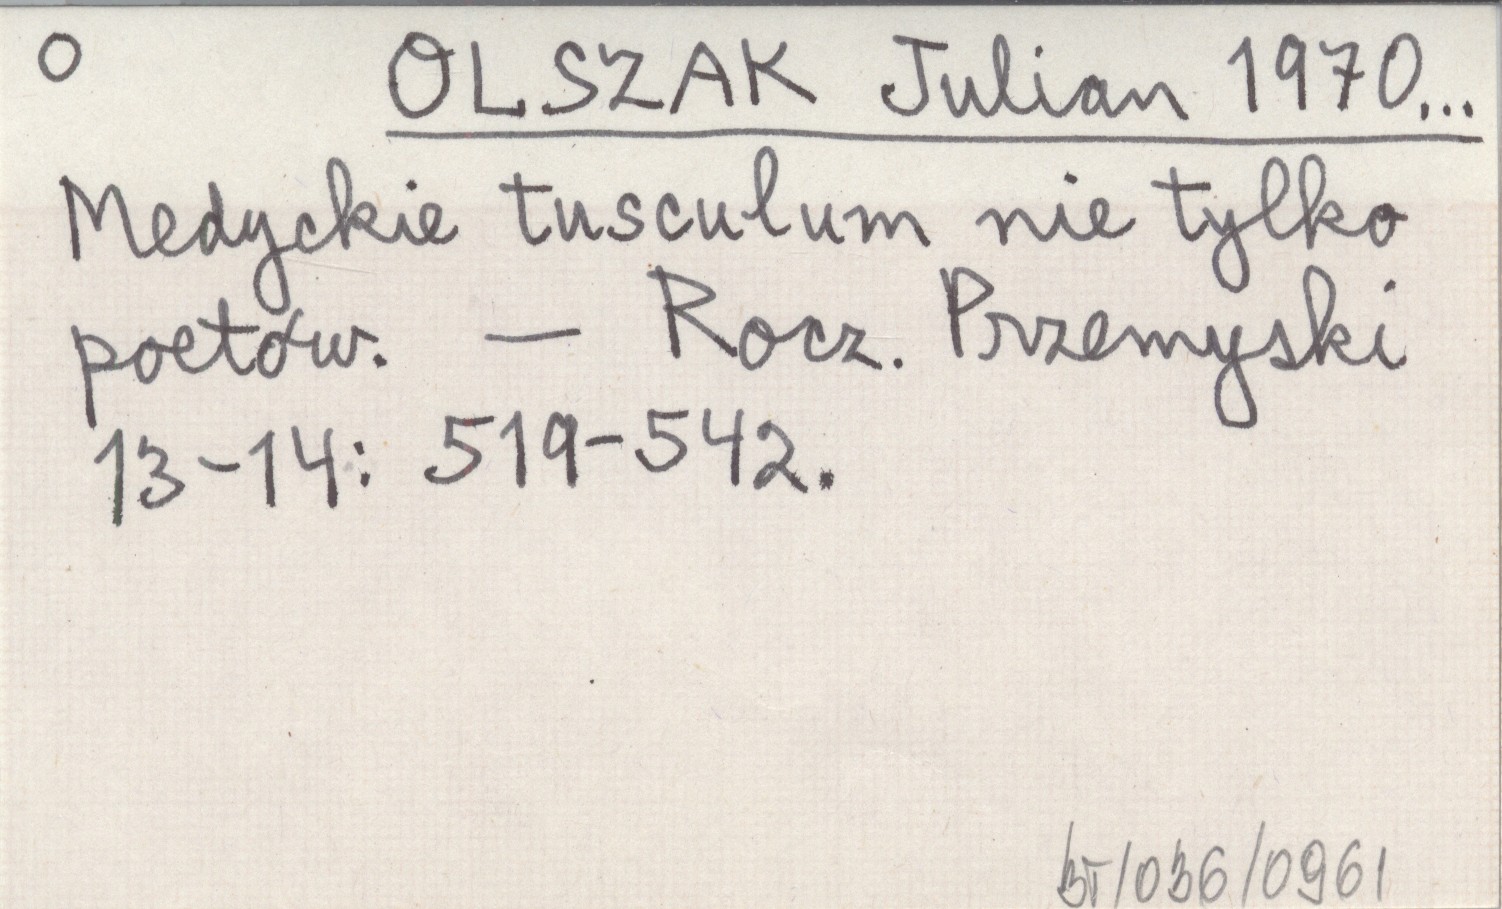 O OLSZAK Julian 1970...
Medyckie tusculum nie tylko
poetów. — Rocz. Przemyski
13-14: 519-542.
BT/036/0961